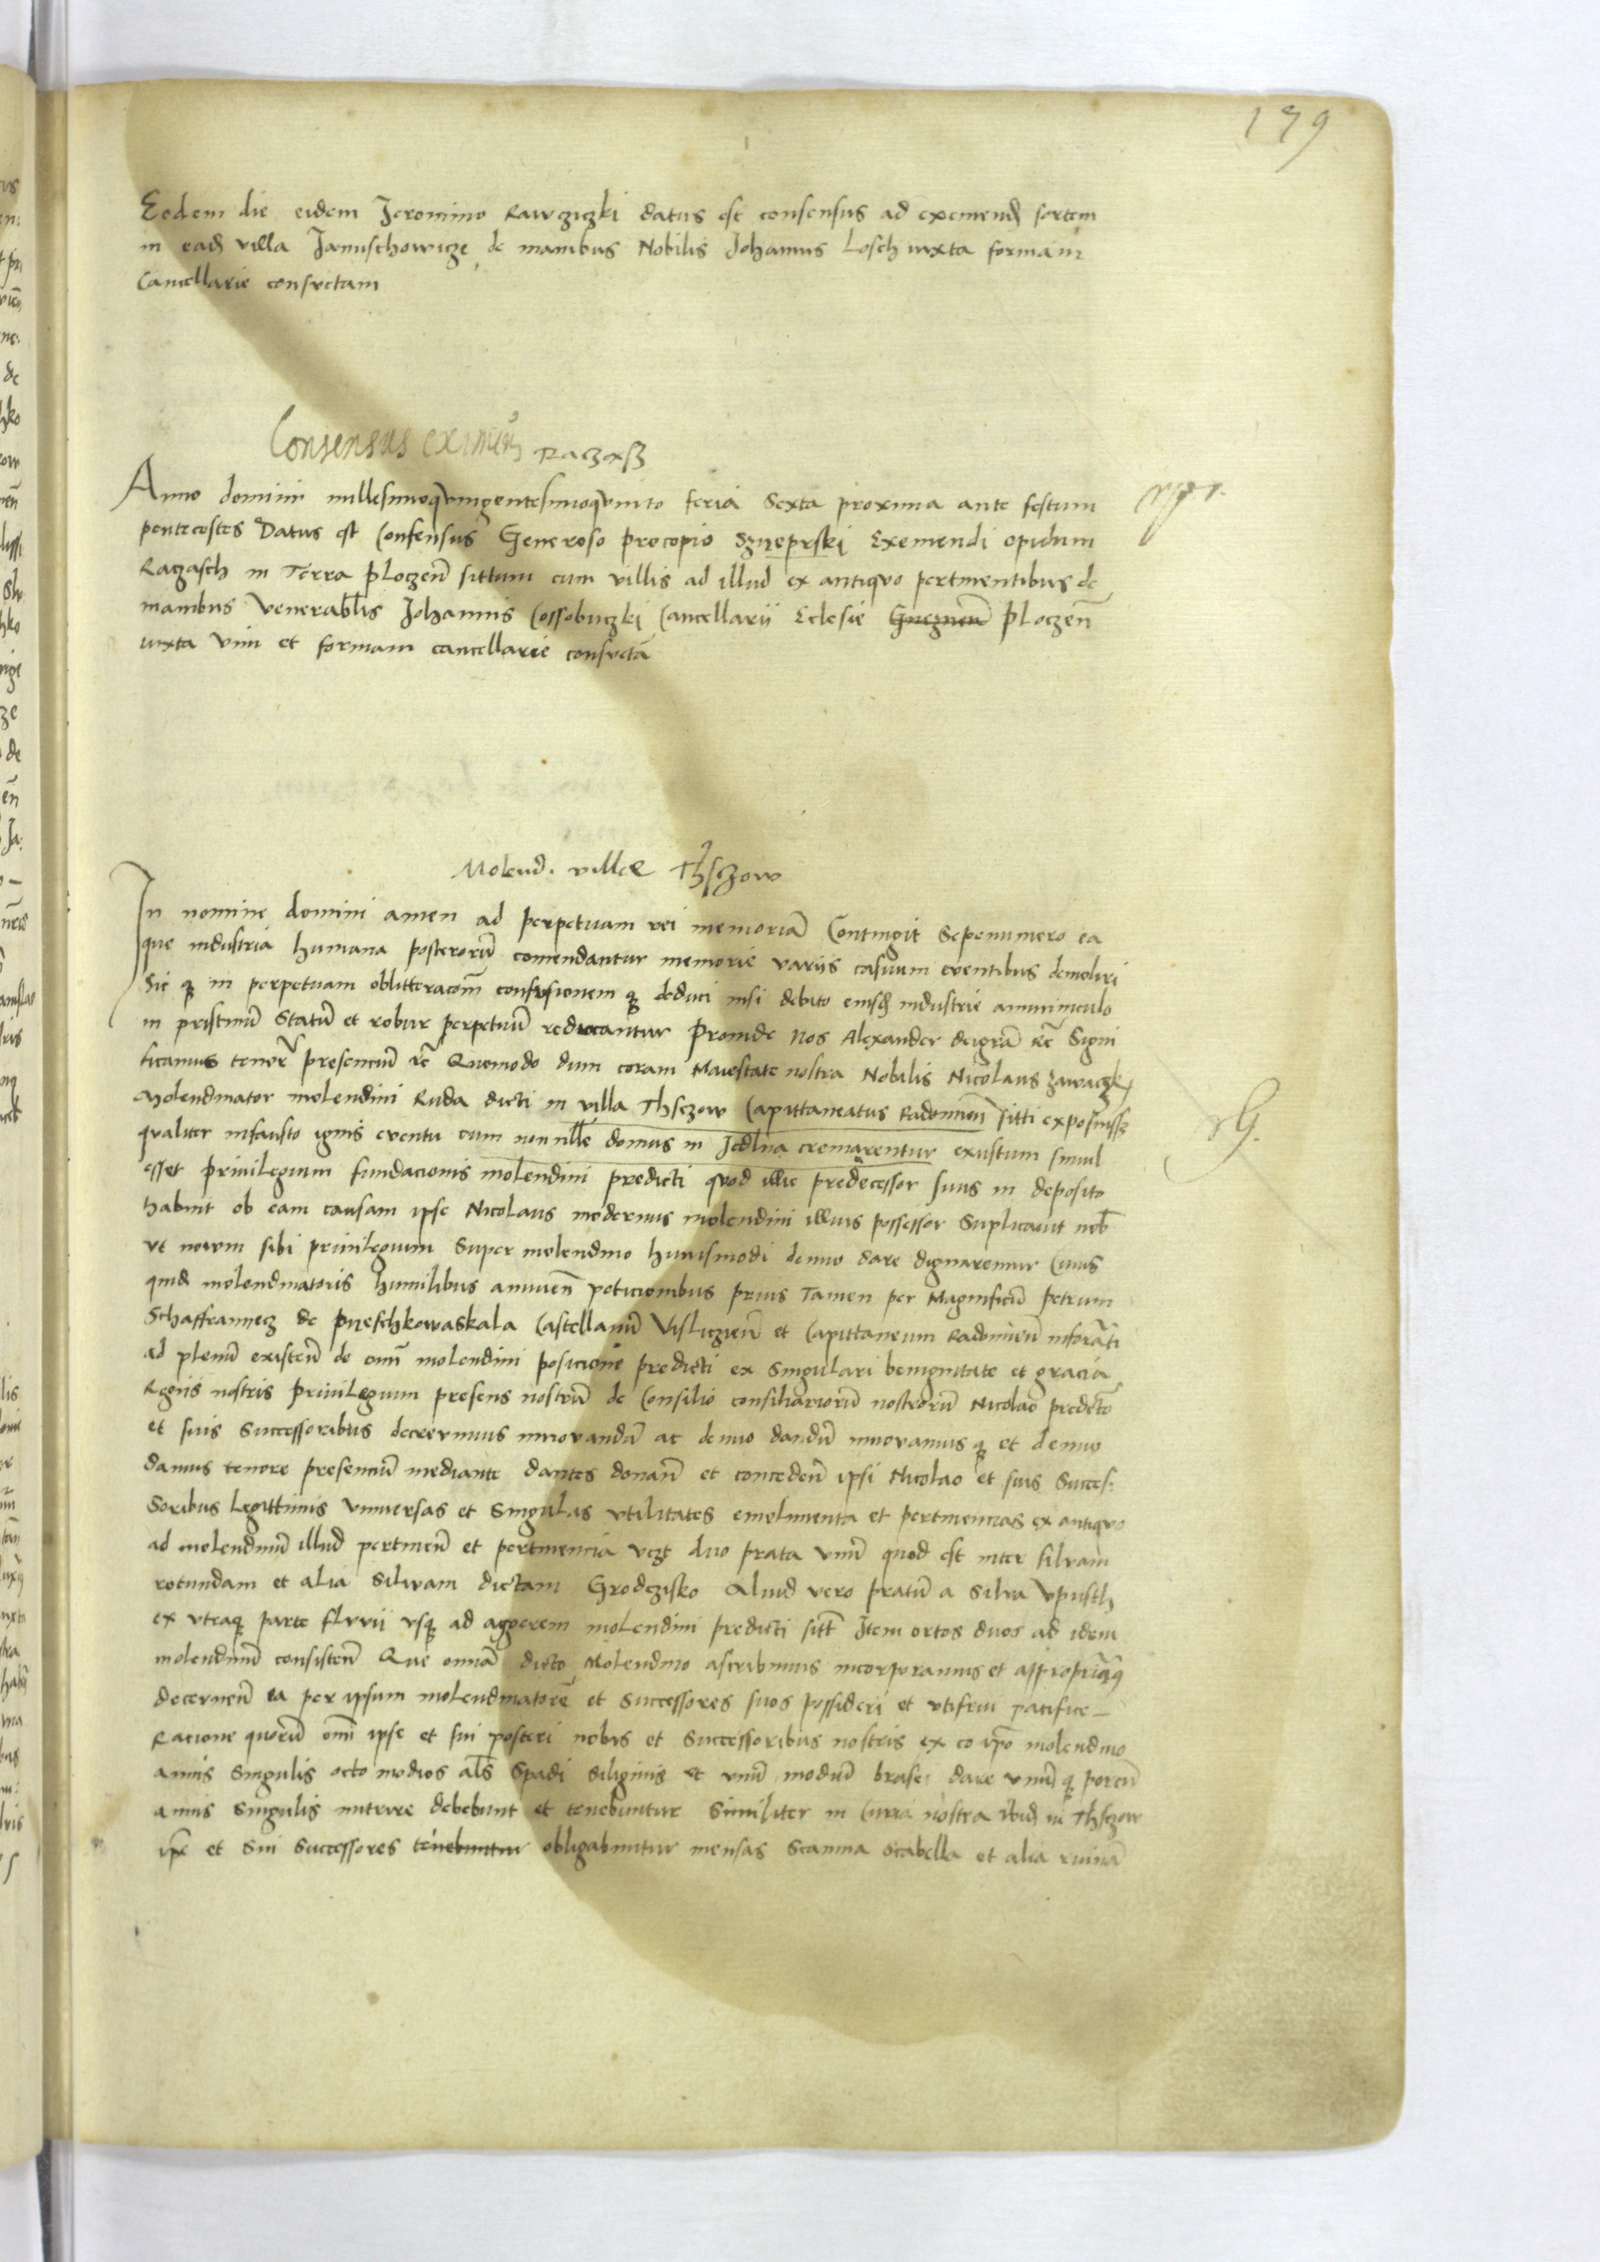 179
Eodem die eidem Jeronimo Rawcziczki datus est consensus ad exemend sortem
in ead villa Januschowicze de manibus Nobilis Johannis Losch iuxta formam
Cancellarie consuetam
Consensus eximen Raczasz
Anno domini millesimoquingentesimoquinto feria Sexta proxima ante festum
pentecostes Datus est Consensus Generoso procopio Szneprski Exemendi opidum
Raczasch in Terra ploczen sittum cum villis ad illud ex antiquo pertinentibus de
manibus Venerabilis Johannis Cossobuczki Cancellarii Eclesie Gneznen ploczen
iuxta vim et formam cancellarie consueta
Molend. ville Thsczow
In nomine domini amen ad perpetuam rei memoria Contingit Sepenumero ea
que industria humana posteroru comendantur memorie variis casuum eventibus demoliri
Sic q in perpetuam oblitteracom confusionem q deduci nisi debito eiusd industrie aminiculo
in pristinu Statu et robur perpetuu reducantur Proinde Nos Alexander deigra Re Signi
ficamus tenor presenciu re Quomodo dum coram Maiestate nostra Nobilis Nicolaus zawaczky
Molendinator molendini Ruda dicti in villa Thsczow Capittaneatus Radomien sitti exposuissz
qualiter infausto ignis eventu cum nonnulle domus in Jedlna cremarentur exustum simul
esset privilegium fundacionis molendini predicti quod illic predecessor suus in deposito
habuit ob eam causam ipse Nicolaus modernus molendini illius possessor Suplicavit nob
vt novum sibi privilegium Super molendino huiusmodi denuo dare dignaremur Cuius
quid molendinatoris humilibus annuen peticionibus prius Tamen per Magnificu petrum
Schaffranyecz de pyeschkowaskala Castellanu Visliczien et Capittaneum Radomien informati
ad plenu existen de omni molendini posicione predicti ex Singulari benignitate et gracia
Regiis nostris privilegium presens nostru de Consilio consiliarioru nostroru Nicolao predicto
et suis Successoribus decrevimus innovandu ac denuo dandu innovamus q et denuo
damus tenore presenciu mediante dantes donan et conceden ipsi Nicolao et suis Succes-
soribus Legittimis vniversas et Singulas vtilitates emolimenta et pertinencias ex antiquo
ad molendinu illud pertinen et pertinencia vcz duo prata vnu quod est inter silvam
rotundam et alia Silvam dictam Grodczisko Aliud vero pratu a Silva Vpusth
ex vtraq parte fluvii vsq ad aggerem molendini predicti sitt Item ortos duos ad idem
molendinu consisten Que omnia dicto Molendino ascribimus incorporamus et appropriaq
decernen ea per ipsum molendinatore et Successores suos possideri et vtifrui pacifice
Racione quoru omi ipse et sui posteri nobis et Successoribus nostris ex eo ipo molendino
annis Singulis octo modios als Spadi siliginis et vnu modiu brasei dare vnu q porcu
annis Singulis nutrire debebunt et tenebuntur Similiter in Curia nostra ibid in Thsczow
ipse et Sui Successores tenebuntur obligabuntur mensas Scamna Scabella et alia ruina